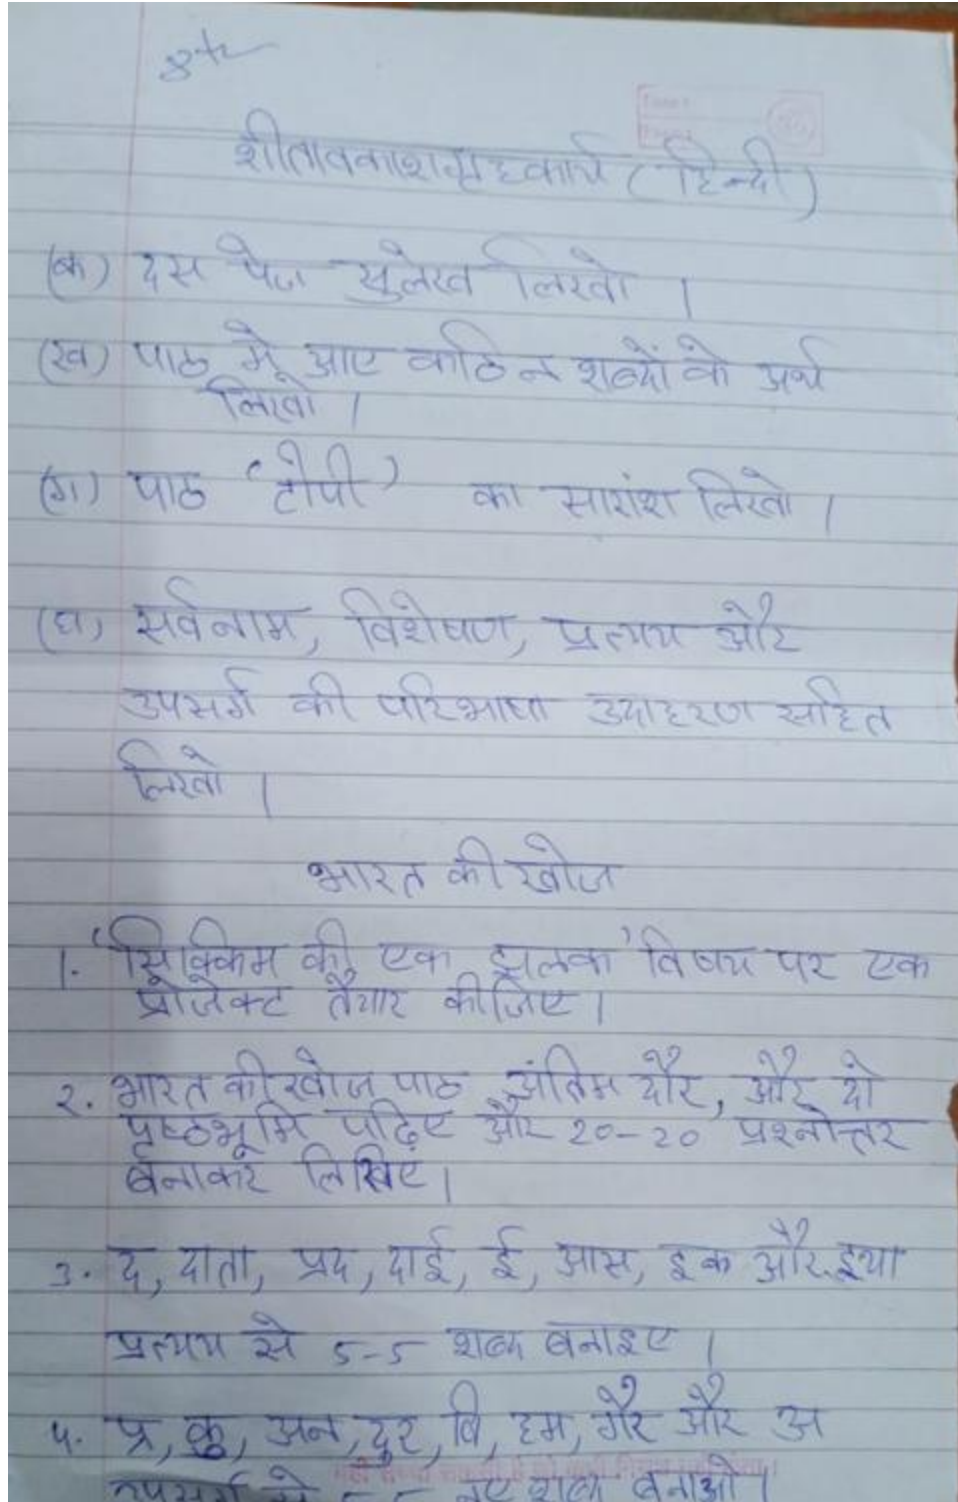 8th
शीतावकाश गृहकार्य (हिन्दी)
(क) दस पेज सुलेख लिखो ।
(ख) पाठ में आए कठिन शब्दों के अर्थ
लिखो ।
(ग) पाठ 'टोपी' का सारांश लिखो ।
(घ) सर्वनाम, विशेषण, प्रत्यय और
उपसर्ग की परिभाषा उदाहरण सहित
लिखो ।
भारत की खोज
1. 'सिक्किम की एक झलक' विषय पर एक
प्रोजेक्ट तैयार कीजिए ।
2. भारत की खोज पाठ अंतिम दौर, और दो
पृष्ठभूमि पढ़िए और 20-20 प्रश्नोत्तर
बनाकर लिखिए ।
3. द, दाता, प्रद, दाई, ई, आस, इक और इया
प्रत्यय से 5-5 शब्द बनाइए ।
4. प्र, कु, अन, दुर, वि, हम, गैर और अ
उपसर्ग से 5-5 नए शब्द बनाओ ।